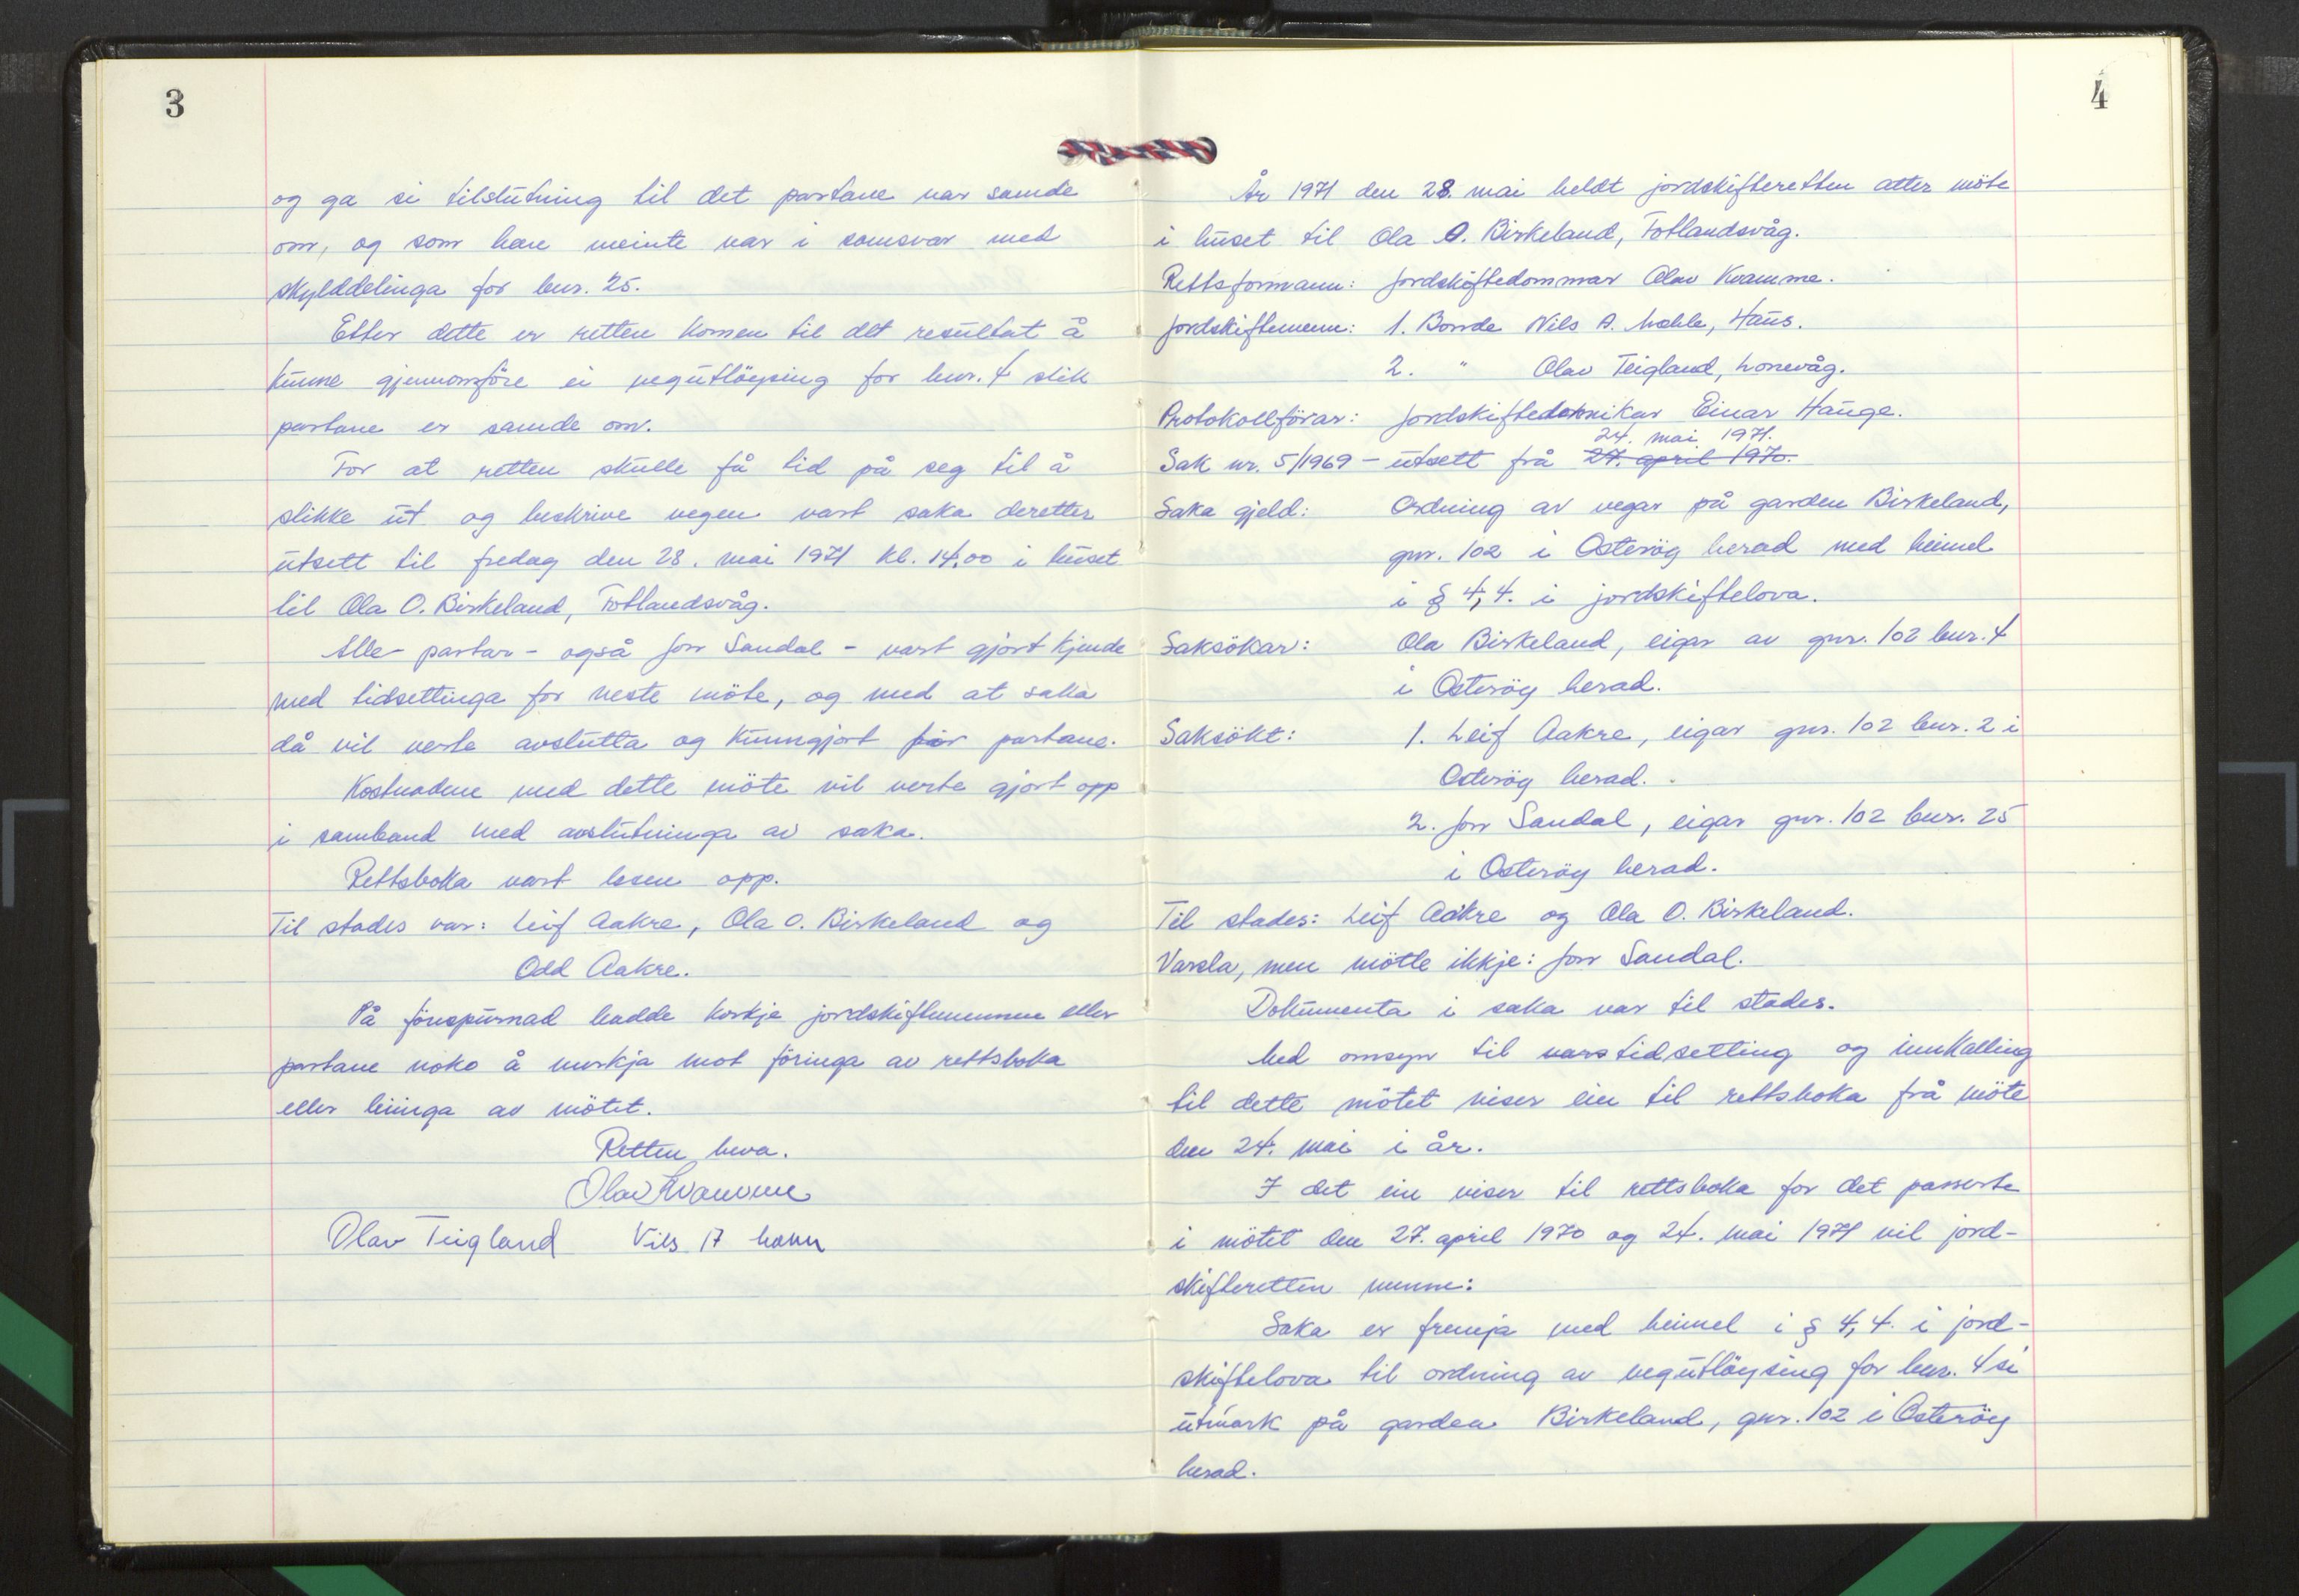 3
og ga si tilslutning til det partane var samde
om, og som han meinte var i samsvar med
skylddelinga for bnr. 25.
Etter dette er retten komen til det resultat å
kunne gjennomföre ei vegutlöysing for bnr. 4 slik
partane er samde om.
For at retten skulle få tid på seg til å
stikke ut og beskrive vegen vart saka deretter
utsett til fredag den 28. mai 1971 kl. 14.00 i huset
til Ola O. Birkeland, Fotlandsvåg.
Alle partar - også Jon Sandal - vart gjort kjende
med tidsettinga for neste möte, og med at saka
då vil verte avslutta og kunngjort for partane.
Kostnadene med dette möte vil verte gjort opp
i samband med avslutninga av saka.
Rettsboka vart lesen opp.
Til stades var: Leif Aakre, Ola O. Birkeland og
Odd Aakre.
På förespurnad hadde korkje jordskiftemennene eller
partane noko å merkja mot föringa av rettsboka
eller leiinga av mötet.
Retten heva.
Olav Kvamme
Olav Teigland Nils A
4
År 1971 den 28. mai heldt jordskifteretten atter möte
i huset til Ola O. Birkeland, Fotlandsvåg.
Rettsformann: Jordskiftedommar Olav Kvamme.
Jordskiftemenn: 1. Bonde Nils A. Mæhle, Haus.
2. " Olav Teigland, Lonevåg.
Protokollförar: Jordskifteteknikar Einar Hauge.
24. mai 1971.
Sak nr. 5/1969 - utsett frå 27. april 1970.
Saka gjeld: Ordning av vegar på garden Birkeland,
gnr. 102 i Osteröy herad med heimel
i § 4,4. i jordskiftelova.
Saksökar: Ola Birkeland, eigar av gnr. 102 bnr. 4
i Osteröy herad.
Saksökt: 1. Leif Aakre, eigar gnr. 102 bnr. 2 i
Osteröy herad.
2. Jon Sandal, eigar gnr. 102 bnr. 25
i Osteröy herad.
Til stades: Leif Aakre og Ola O. Birkeland.
Varsla, men mötte ikkje: Jon Sandal.
Dokumenta i saka var til stades.
Med omsyn til tidsetting og innkalling
til dette mötet viser ein til rettsboka frå möte
den 24. mai i år.
I det ein viser til rettsboka for det passerte
i mötet den 27. april 1970 og 24. mai 1971 vil jord-
skifteretten nemne:
Saka er fremja med heimel i § 4,4. i jord-
skiftelova til ordning av vegutlöysing for bnr. 4 si
utmark på garden Birkeland, gnr. 102 i Osteröy
herad.